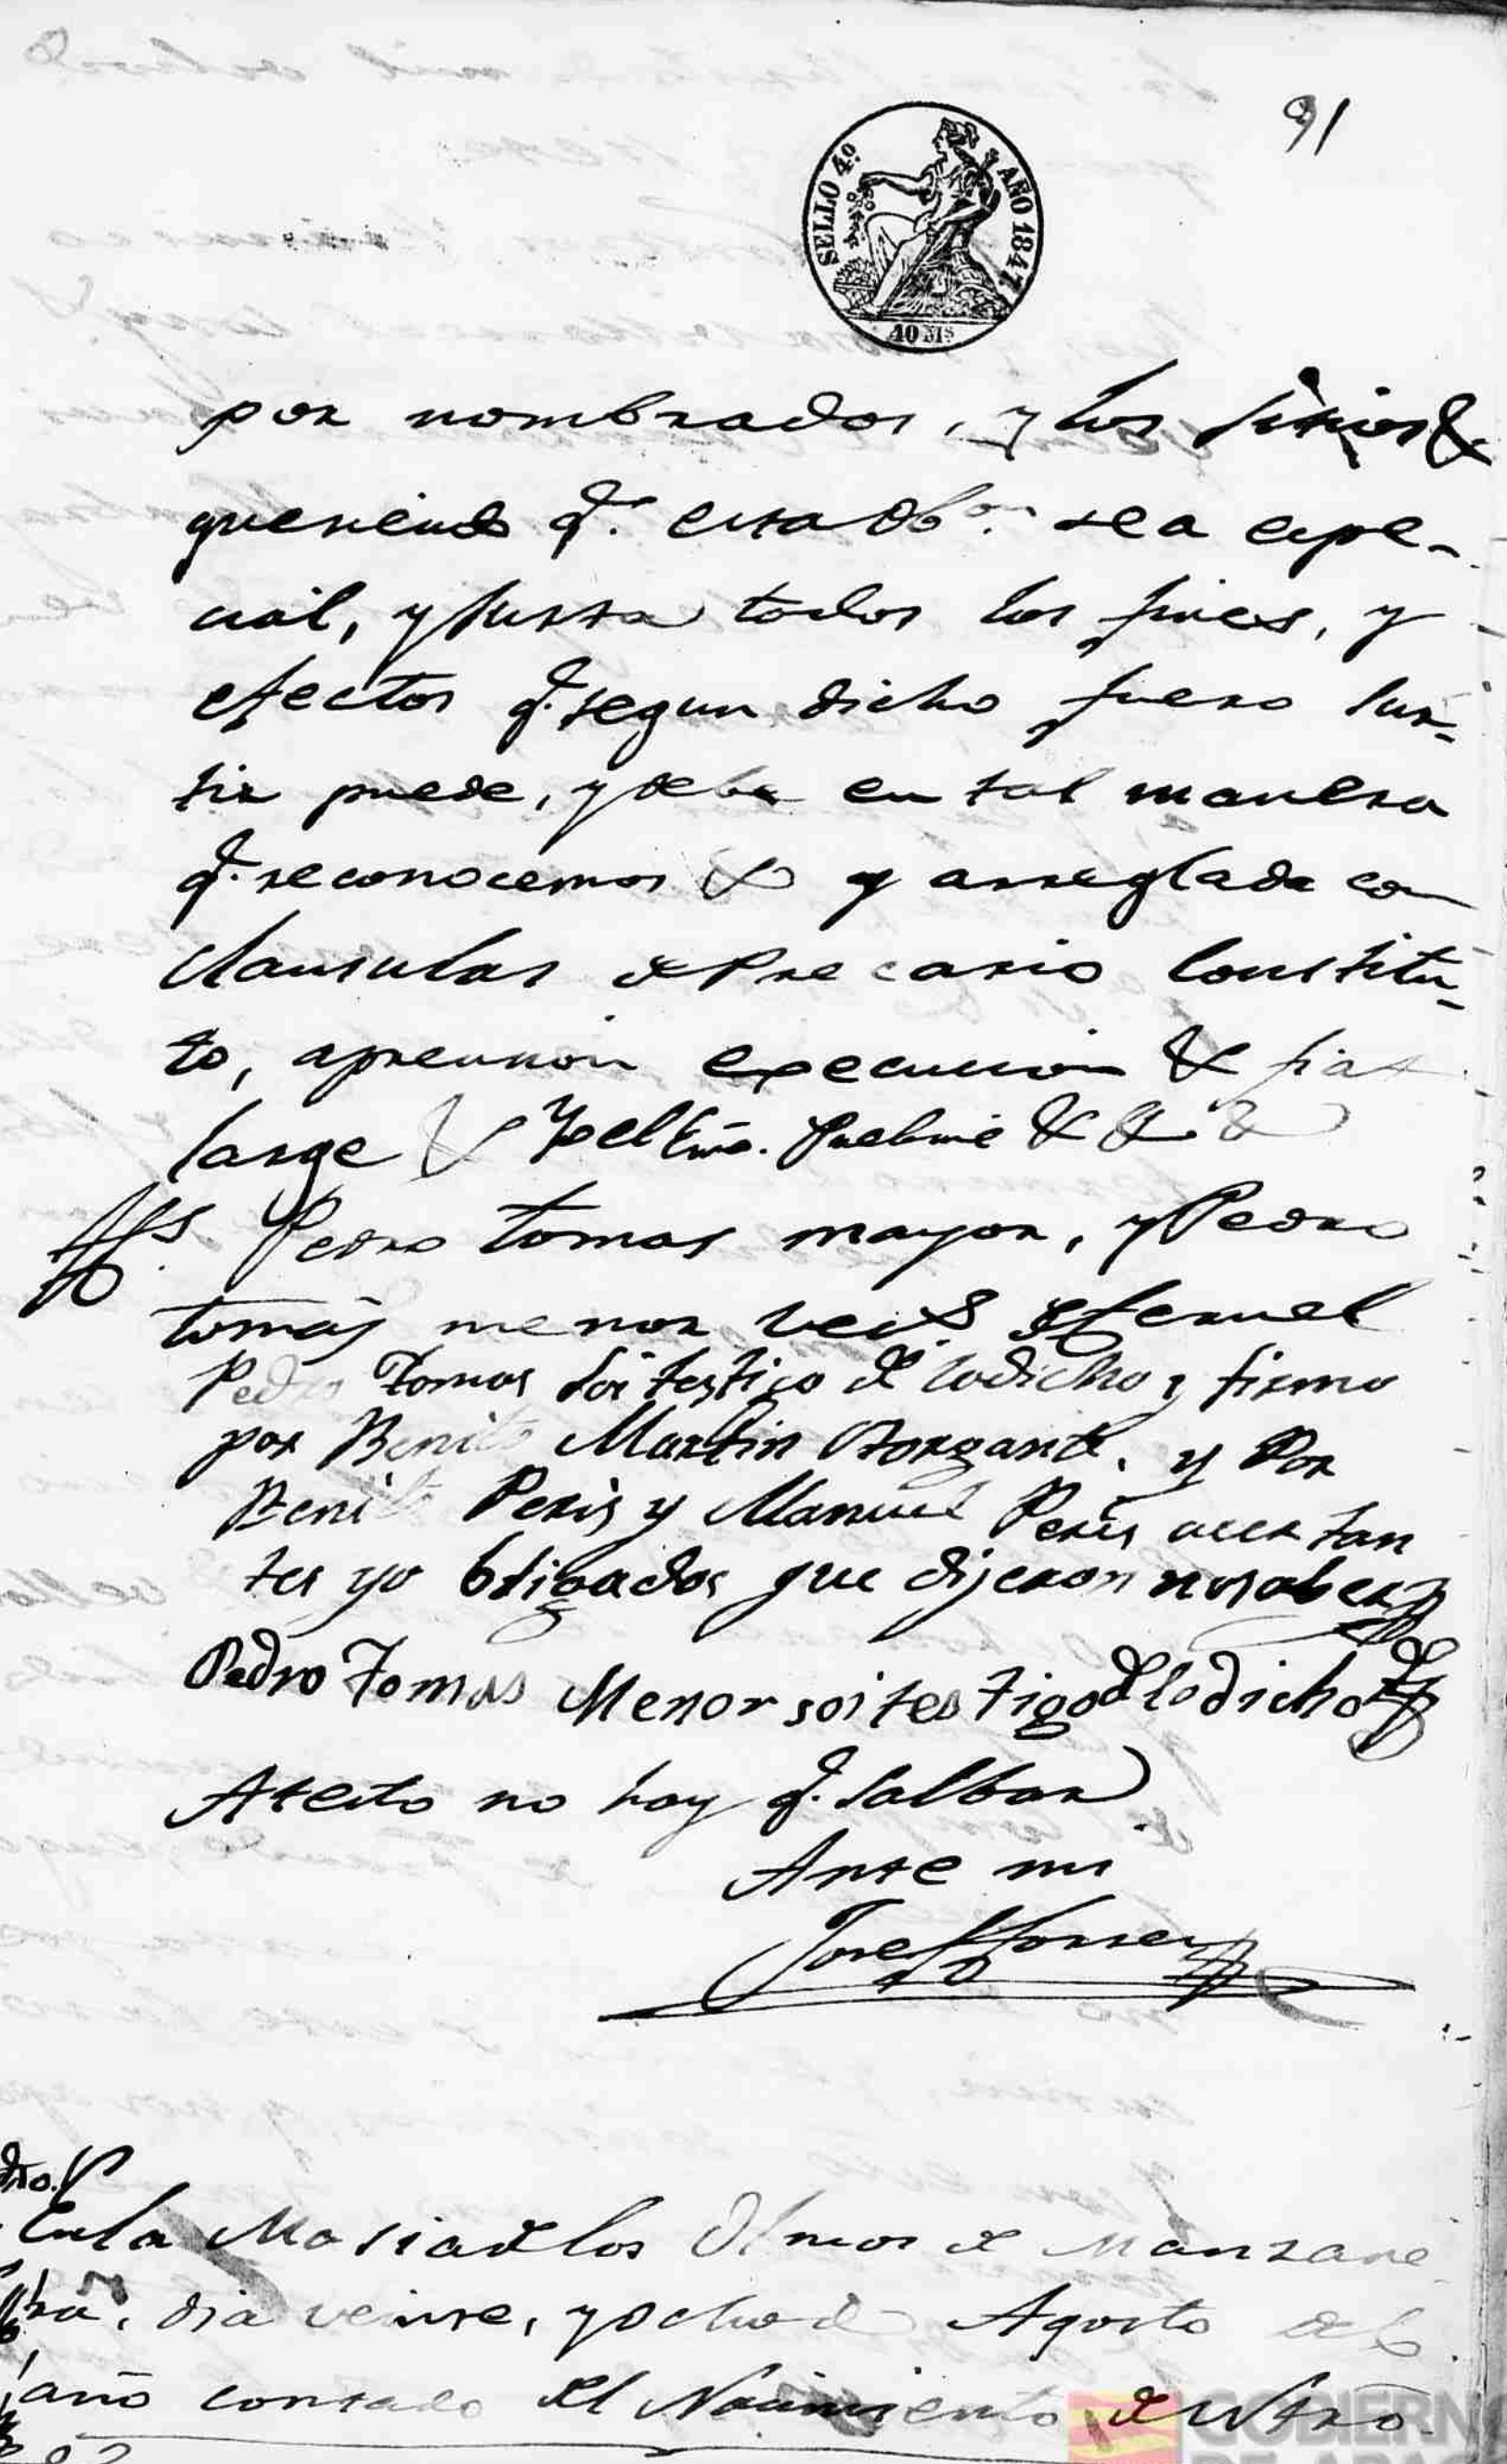 91
SELLO 4º AÑO 1847
40 Ms
por nombrados, y los sitios &
queriendo q. esta Obon. sea espe-
cial, y surta todos los fines, y
efectos q. segun dicho fuero sur-
tir puede, y debe en tal manera
q. reconocemos & y arreglada con
clausulas de Precario Constitu-
to, aprension execucion & fiat
large & &&&
tts. Pedro tomas mayor, y Pedro
tomás menor vecs. de teruel
Pedro Tomas soi testigo de lo dicho y firmo
por Benito Martin Otorgante. y Por
Benito Peris y Manuel Peris acer tan
tes yo bligados que dijeron no saber
Pedro Tomas Menor soi testigo de lo dicho
Atesto no hay q. Salbar
Ante mi
Jose Torres
dro.
En la Masia de los Olmos de Manzane
ra, dia veinte, y ocho de Agosto del
año contado del Nacimiento de Ntro
GOBIERNO